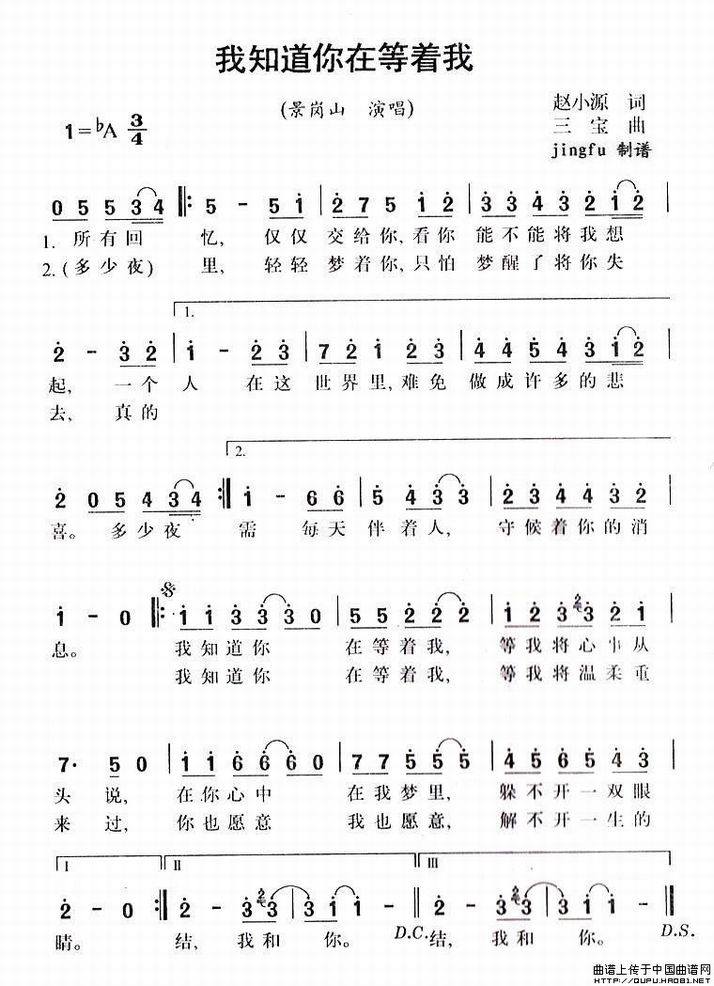 我知道你在等着我
(景岗山 演唱)
赵小源 词
三宝 曲
jingfu 制谱
1=♭A 3/4
0 5 5 3 4 5 - 5 1 2 7 5 1 2 3 3 4 3 2 1 2
1. 所有回 忆, 仅仅 交给你,看你 能不能将我想
2.(多少夜) 里, 轻轻 梦着你,只怕 梦醒了将你失
1.
2 - 3 2 1 - 2 3 7 2 1 2 3 4 4 5 4 3 1 2
起, 一个 人 在这 世界里,难免 做成许多的悲
去, 真的
2.
2 0 5 4 3 4 1 - 6 6 5 4 3 3 2 3 4 4 3 2
喜。 多少夜 需 每天 伴着人, 守候着你的消
1 - 0 1 1 3 3 3 0 5 5 2 2 2 1 2 3 3 2 1
息。 我知道你 在等着我, 等我将心事从
我知道你 在等着我, 等我将温柔重
7· 5 0 1 1 6 6 6 0 7 7 5 5 5 4 5 6 5 4 3
头 说, 在你心中 在我梦里, 躲不开一双眼
来 过, 你也愿意 我也愿意, 解不开一生的
I II III
2 - 0 2 - 3 3 3 1 1 0 2 - 3 3 3 1 1 0
睛。 结, 我和 你。 D.C. 结, 我和 你。 D.S.
曲谱上传于中国曲谱网
HTTP://QUPU.HAO81.NET